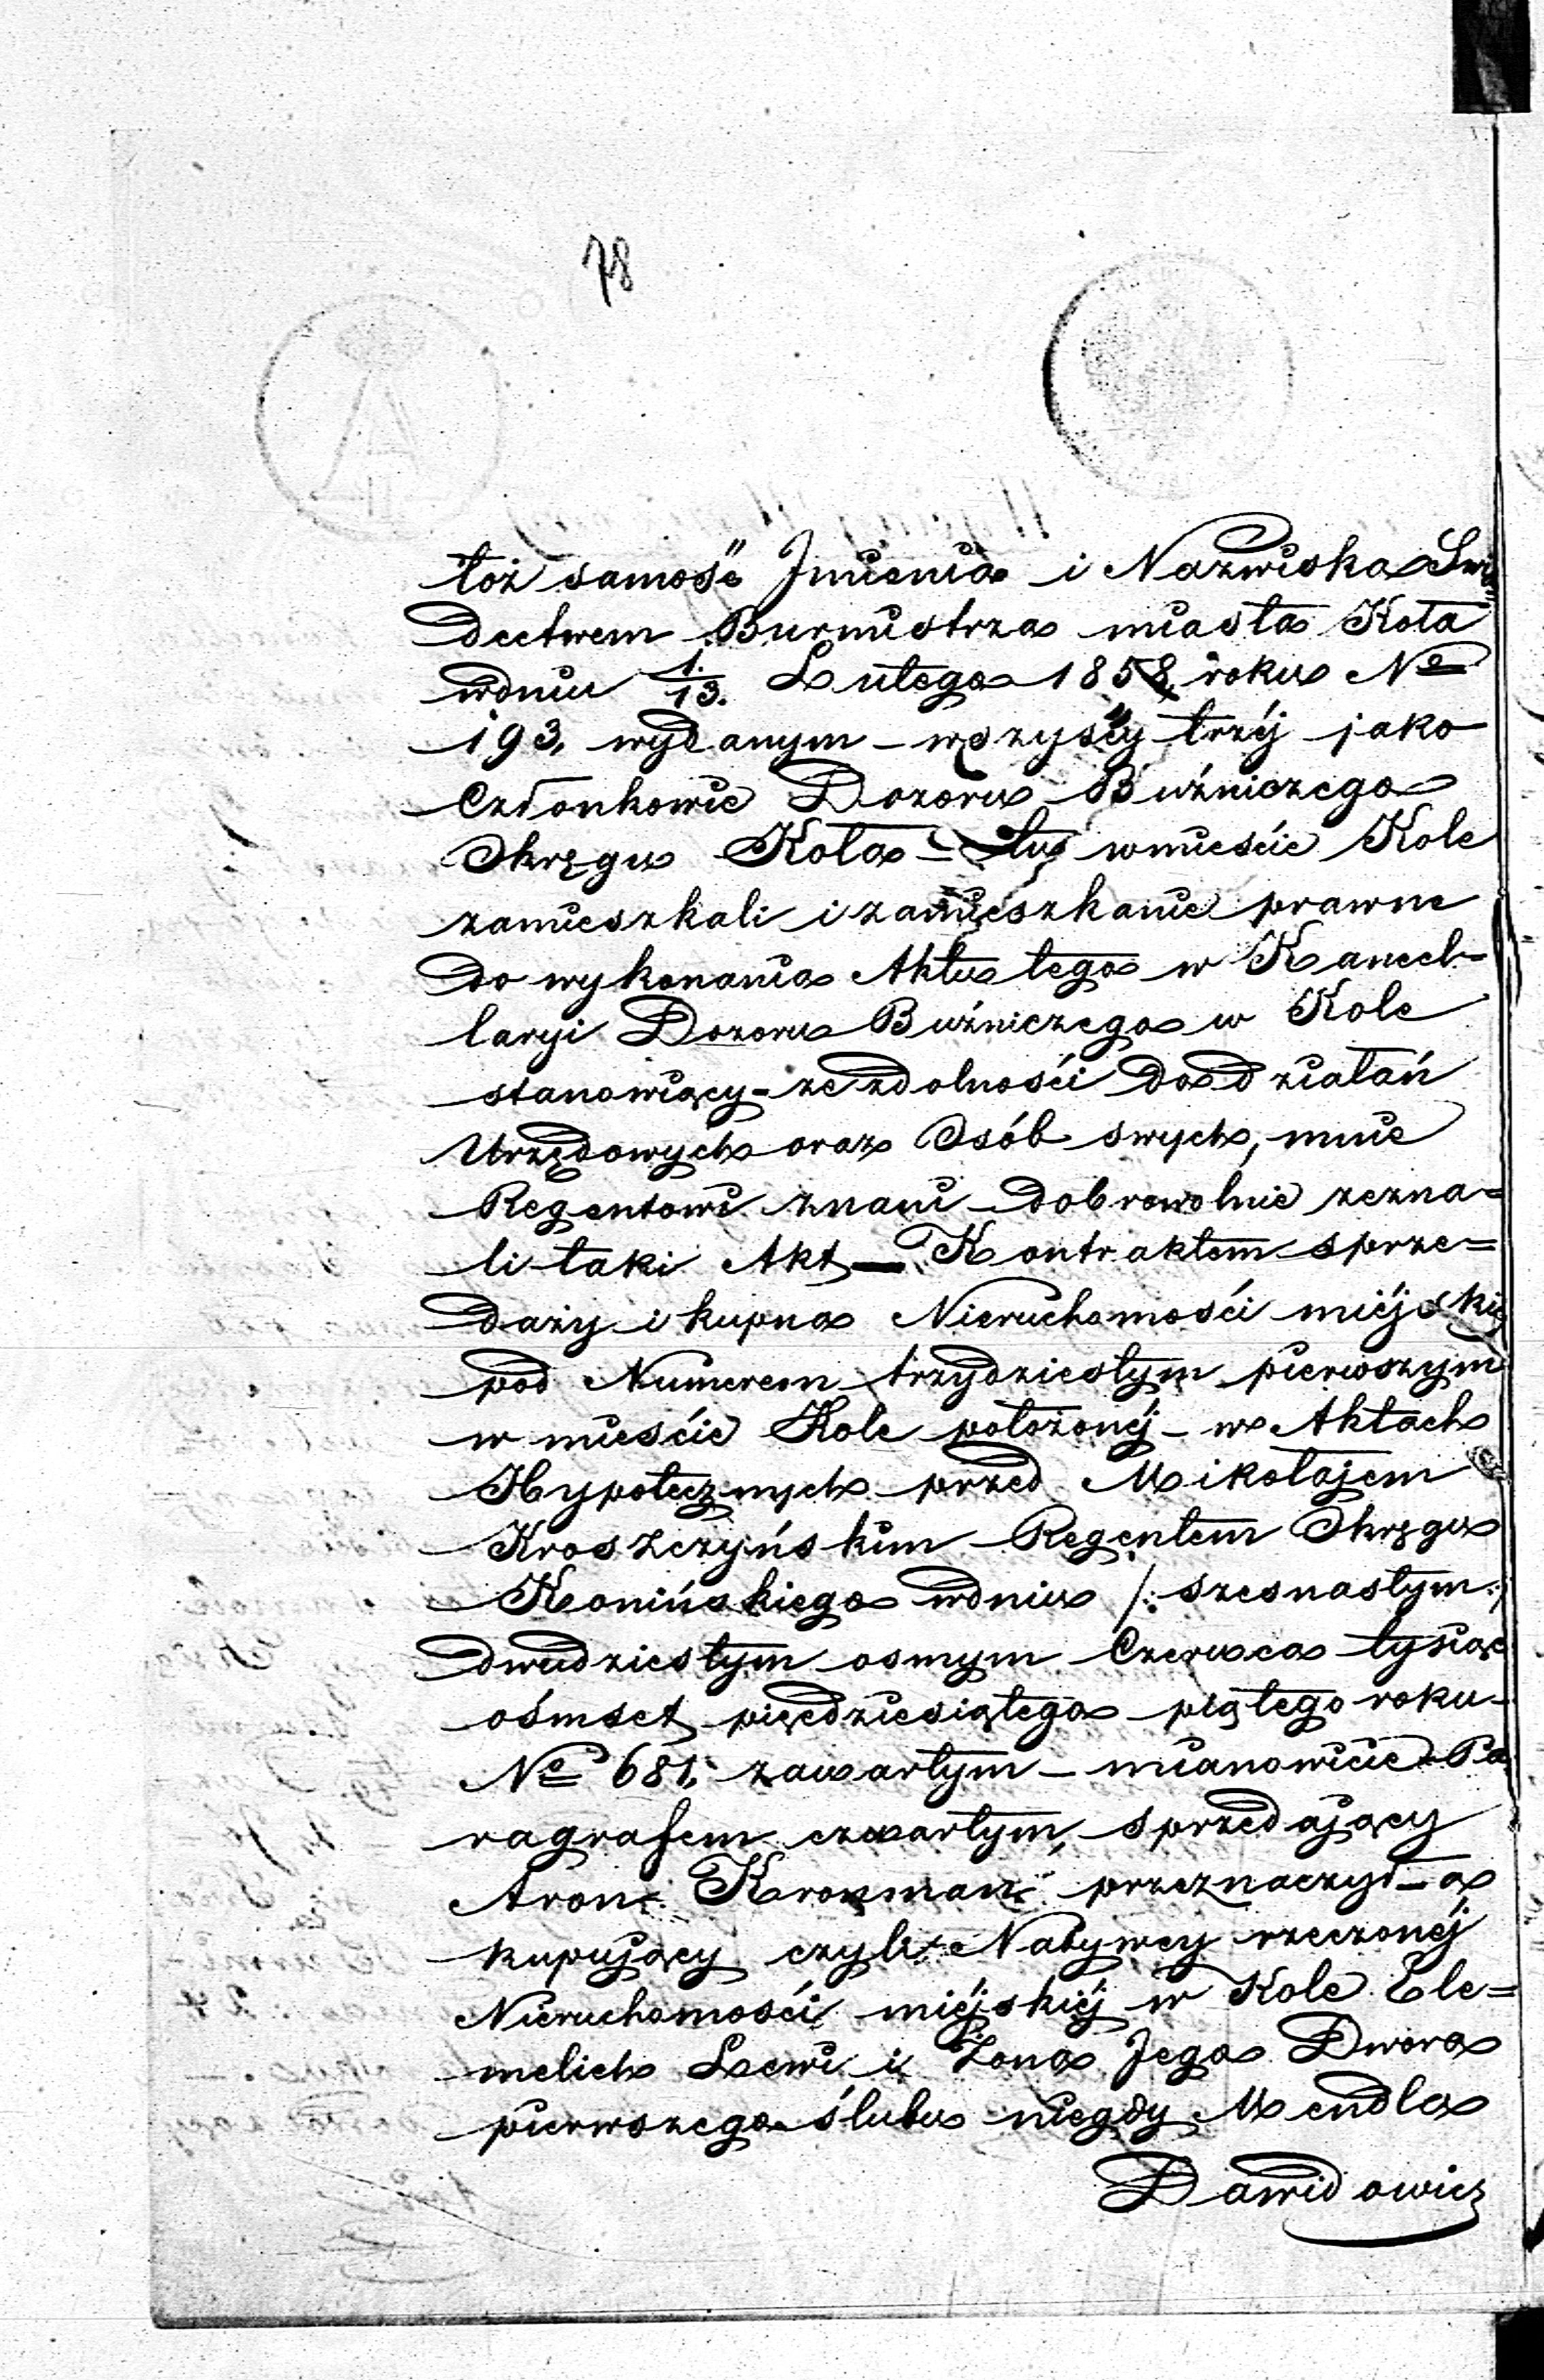 78
toż samość Jmienia i Nazwiska Świa=
dectwem Burmistrza miasta Koła
wdniu 1./13. Lutego 1858 roku No
193, wydanym – wszyscy trzéj jako
Członkowie Dozoru Bużniczego
Okręgu Koła – tu wmieście Kole
zamieszkali i zamieszkanie prawne
do wykonania Aktu tego w Kancel-
laryi Dozoru Bużniczego w Kole
stanowiący – ze zdolności do działań
Urzędowych oraz Osób swych, mnie
Regentowi znani dobrowolnie zezna=
li taki Akt — Kontraktem sprze=
daży i kupna Nieruchomości miéjskié
pod Numerem trzydziestym pierwszym
w mieście Kole położonéj – w Aktach
Hypotecznych przed Mikołajem
Kroszczyńskim Regentem Okręgu
Konińskiego wdniu /: szesnastym :/
dwudziestym osmym Czerwca tysiąc
ośmset pięćdziesiątego piątego roku –
No 681, zawartym – mianowicie Pa
ragrafem czwartym, sprzedający
Aron Krozman przeznaczył – a
kupujący czyli Nabywcy rzeczonéj
Nieruchomości miéjskiéj w Kole Ele=
melich Lewi i Żona Jego Dwora
pierwszego ślubu niegdy Mendla
Dawidowicz